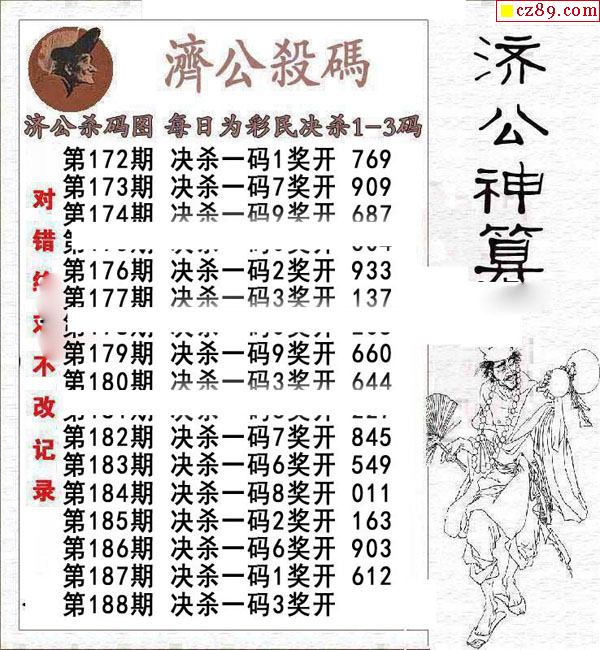 cz89.com
濟公殺碼
济公杀码图 每日为彩民决杀1-3码
第172期 决杀一码1奖开 769
第173期 决杀一码7奖开 909
第174期 决杀一码9奖开 687
第176期 决杀一码2奖开 933
第177期 决杀一码3奖开 137
第179期 决杀一码9奖开 660
第180期 决杀一码3奖开 644
第182期 决杀一码7奖开 845
第183期 决杀一码6奖开 549
第184期 决杀一码8奖开 011
第185期 决杀一码2奖开 163
第186期 决杀一码6奖开 903
第187期 决杀一码1奖开 612
第188期 决杀一码3奖开
对错 不改记录
济公神算